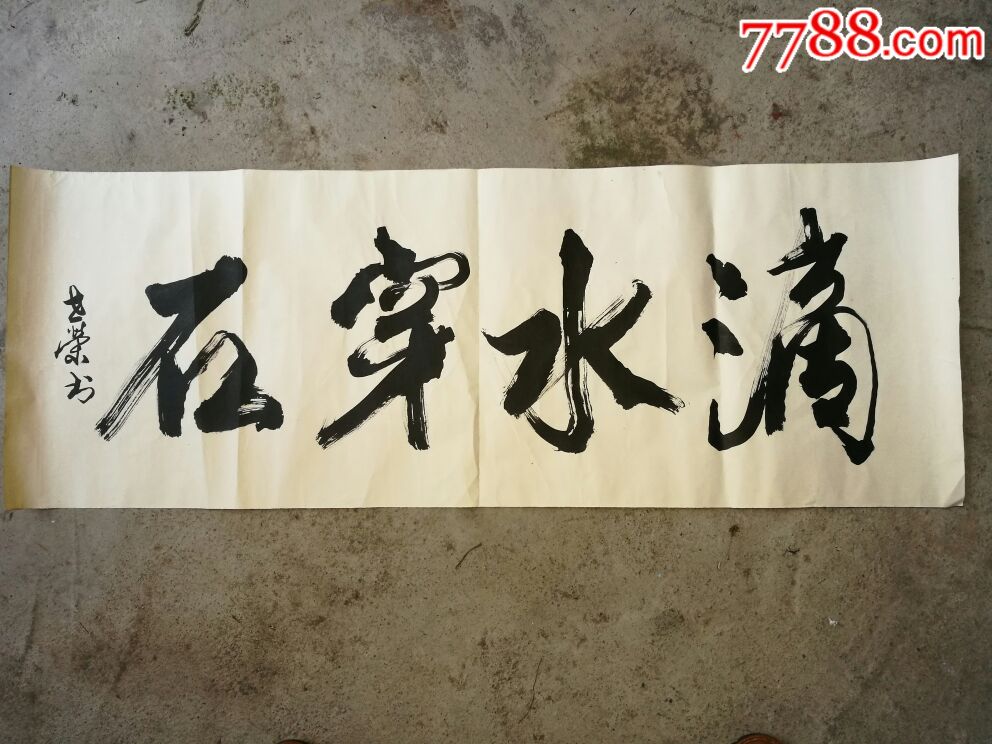 7788.com
滴水穿石
志荣书